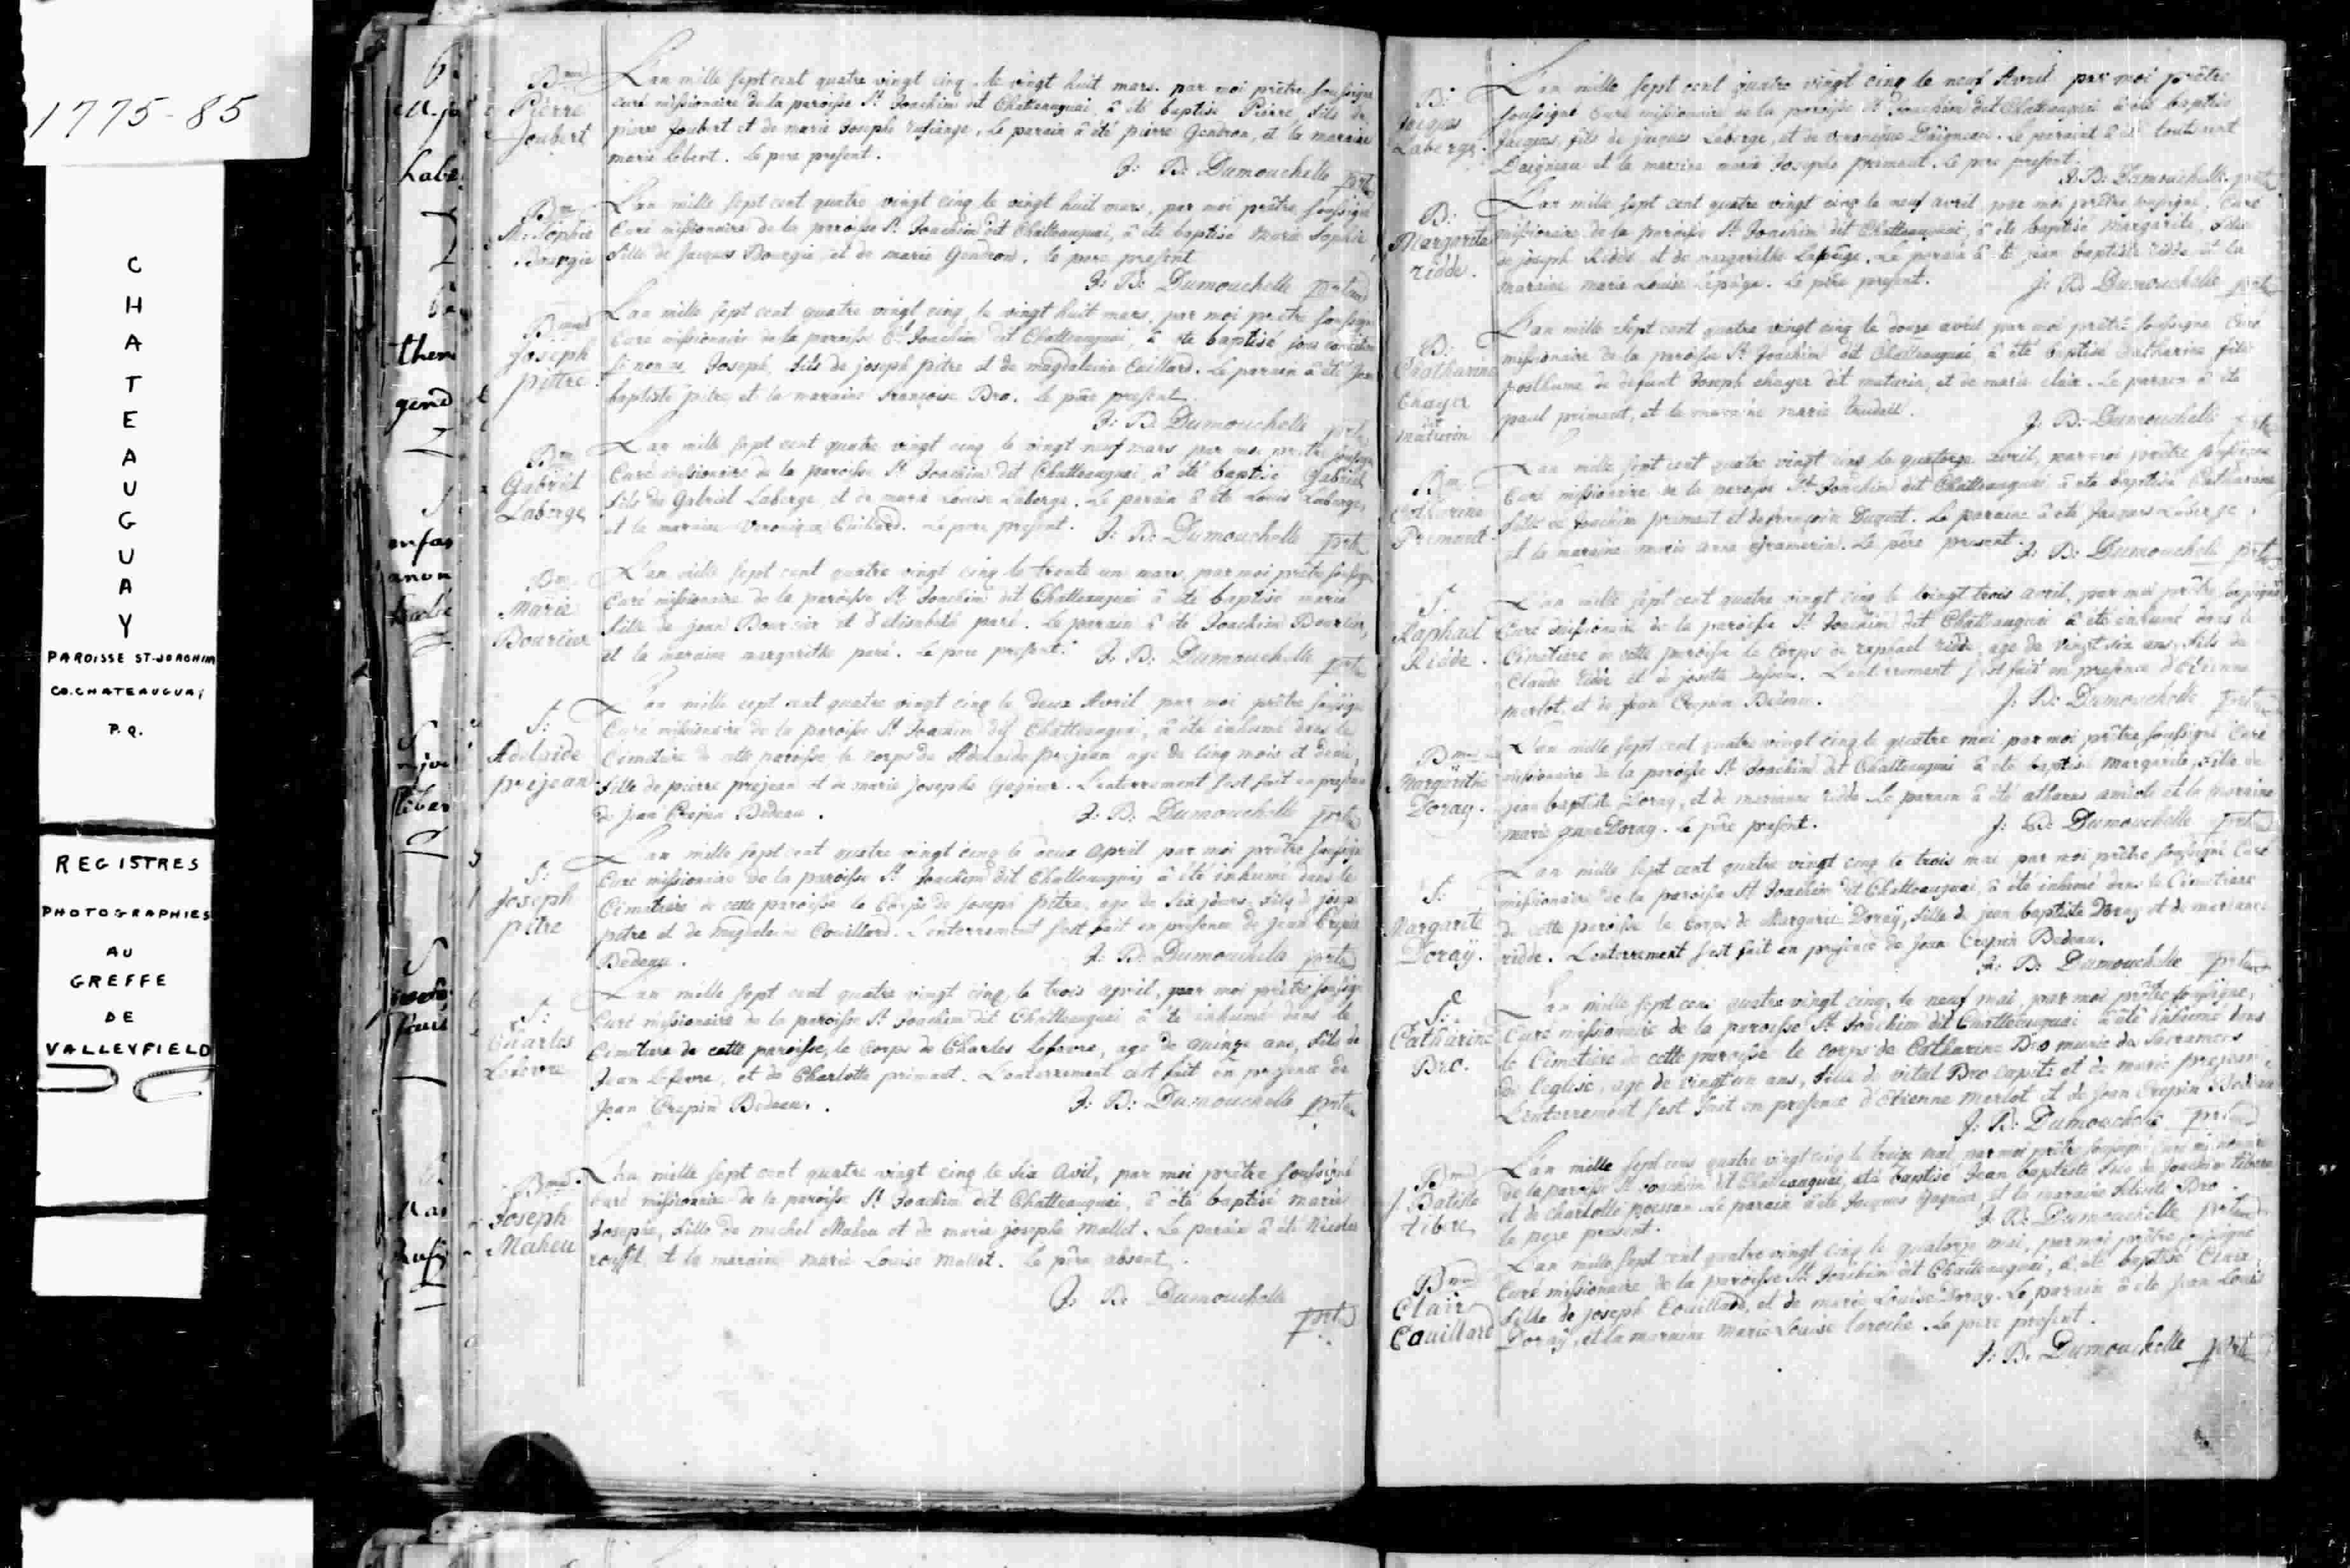 1775-85
CHATEAUGUAY
PAROISSE ST-JOACHIM
CO. CHATEAUGUAY
P.Q.
REGISTRES
PHOTOGRAPHIES
AU
GREFFE
DE
VALLEYFIELD
Bme
Pierre
Joubert
L'an mille sept cent quatre vingt cinq, le vingt huit mars, par moi prêtre soussigné
curé missionaire de la paroisse St. Joachim dit Chateauguai, à été baptisé Pierre, fils de
pierre Joubert et de marie Joseph rufiange, le parain à été pierre Gendron, et la maraine
marie lebert. Le pere present.
J: B: Dumouchelle prtre
Bme
M. Sophie
Bourgie
L'an mille sept cent quatre vingt cinq le vingt huit mars, par moi prêtre soussigné
Curé missionaire de la paroisse St. Joachim dit Chatteauguai, à été baptisé Marie Sophie
fille de Jacques Bourgie, et de marie Gendron. le pere present
J: B: Dumouchelle prtre
Bme
Joseph
pittre
L'an mille sept cent quatre vingt cinq, le vingt huit mars, par moi prêtre soussigné
Curé missionaire de la paroisse St. Joachim dit Chatteauguai, à été baptisé sous condition
Joseph, fils de joseph pitre et de magdaleine Cuillard. Le parain à été Jean
baptiste pitre, et la maraine françoise Bro. Le père present
J: B: Dumouchelle prtre
Bme
Gabriel
Laberge
L'an mille sept cent quatre vingt cinq le vingt neuf mars par moi prêtre soussigné
Curé missionaire de la paroisse St. Joachim dit Chatteauguai, à été baptisé Gabriel
fils de Gabriel Laberge, et de marie Louise Laberge. Le parain à été Louis Laberge,
et la maraine Veronique Cuillard. Le pere present.
J: B: Dumouchelle prtre
Bme
Marie
Bourcier
L'an mille sept cent quatre vingt cinq le trente un mars, par moi prêtre soussigné
Curé missionaire de la paroisse St. Joachim dit Chatteauguai à été baptisé marie
fille de jean Bourcier et d'elisabeth paré. Le parrain à été Joachim Bourcier,
et la maraine margarithe paré. Le pere present.
J: B: Dumouchelle prtre
S:
Adelaide
prejean
L'an mille sept cent quatre vingt cinq le deux Avril par moi prêtre soussigné
Curé missionaire de la paroisse St. Joachim dit Chatteauguai, à été inhumé dans le
Cimetiere de cette paroisse le corps de Adelaide prejean age de cinq mois et demi,
fille de pierre prejean et de marie josephe Gagnier. L'enterrement s'est fait en presence
de Jean Crepin Bedeau.
J: B: Dumouchelle prtre
S:
Joseph
pitre
L'an mille sept cent quatre vingt cinq le deux april par moi prêtre soussigné
Curé missionaire de la paroisse St. Joachim dit Chatteauguai à été inhumé dans le
Cimetiere de cette paroisse le Corps de joseph pitre, age de six jours, fils de josep
pitre et de magdaleine Couillard. L'enterrement s'est fait en presence de Jean Crepin
Bedeau.
J: B: Dumouchelle prtre
S:
Charles
Lefevre
L'an mille sept cent quatre vingt cinq le trois april, par moi prêtre soussigné
Curé missionaire de la paroisse St. Joachim dit Chatteauguai à été inhumé dans le
Cimetiere de cette paroisse, le corps de Charles lefevre, age de quinze ans, fils de
Jean Lefevre, et de Charlotte primaut. L'enterrement s'est fait en presence de
Jean Crepin Bedeau.
J: B: Dumouchelle prtre
Bme
Joseph
Maheu
L'an mille sept cent quatre vingt cinq le six Avil, par moi prêtre soussigné
curé missionaire de la paroisse St. Joachim dit Chatteauguai, à été baptisé marie
Josephe, fille de michel Maheu et de marie josephe Mallet. Le parain à été Nicolas
et la maraine marie Louise Mallet. Le père absent.
J: B: Dumouchelle
prtre
B:
Jacques
Laberge.
L'an mille sept cent quatre vingt cinq le neuf Avril par moi prêtre
soussigné Curé missionaire de la paroisse St. Joachim dit Chatteauguai à été baptisé
Jacques, fils de jacques Laberge, et de veronique Daigneau. Le paraint à été toussaint
Daigneau et la maraine marie Josephe primaut. Le pere present.
J: B: Dumouchelle prtre
B:
Margarite
ridde.
L'an mille sept cent quatre vingt cinq le neuf avril par moi prêtre soussigné, Curé
missionaire de la paroisse St. Joachim dit Chatteauguai, à été baptisé Margarite, fille
de joseph Ridde et de margarithe Lepage. Le parain à été jean baptiste ridde et la
maraine marie Louise lepage. Le père present.
J: B: Dumouchelle prtre
B:
Chatharine
Chayer
dit
maturin
L'an mille sept cent quatre vingt cinq le douze avril par moi prêtre soussigné Curé
missionaire de la paroisse St. Joachim dit Chatteauguai, à été baptisé Catharine fille
posthume de defunt Joseph chayer dit maturin, et de marie clair. Le parain à été
paul primaut, et la maraine marie trudell.
J: B: Dumouchelle prtre
Bme
Catharine
Primaut.
L'an mille sept cent quatre vingt cinq le quatorze avril, par moi prêtre soussigné
Curé missionaire de la paroisse St. Joachim dit Chatteauguai à été baptisé Catharine
fille de Joachim primaut et de françoise Duquet. Le paraine à été Jacques Laberge,
et la maraine marie anne. Le père present.
J: B: Dumouchelle prtre
S:
Raphael
Ridde.
L'an mille sept cent quatre vingt cinq le vingt trois avril, par moi prêtre soussigné
Curé missionaire de la paroisse St. Joachim dit Chatteauguai à été inhumé dans le
Cimetiere de cette paroisse le corps de raphael ridde, age de vingt six ans, fils de
Claude ridde et de josette. L'enterrement s'est fait en presence d'Etienne
merlot, et de Jean Crepin Bedeau.
J: B: Dumouchelle prtre
Bme
Margarithe
Doray.
L'an mille sept cent quatre vingt cinq le quatre mai par moi prêtre soussigné Curé
missionaire de la paroisse St. Joachim dit Chatteauguai à été baptisé Margarite, fille de
jean baptiste Doray, et de marianne ridde. Le parain à été et la maraine
marie anne Doray. Le père present.
J: B: Dumouchelle prtre
S:
Margarite
Doraÿ.
L'an mille sept cent quatre vingt cinq le trois mai par moi prêtre soussigné Curé
missionaire de la paroisse St Joachim dit Chatteauguai, à été inhumé dans le Cimetiere
de cette paroisse le corps de Margarite Doraÿ, fille de jean baptiste Doray et de marianne
ridde. L'enterrement s'est fait en presence de Jean Crepin Bedeau.
J: B: Dumouchelle prtre
S:
Catharine
Bro.
L'an mille sept cent quatre vingt cinq, le neuf mai, par moi prêtre soussigné,
Curé missionaire de la paroisse St. Joachim dit Chatteauguai à été inhumé dans
le Cimetiere de cette paroisse le corps de Catharine Bro munie des sacremens
de l'eglise, age de vingt un ans, fille de vital Bro et de marie prejean.
L'enterrement s'est fait en presence d'Etienne merlot et de Jean Crepin Bedeau
J: B: Dumouchelle prtre
Bme
J Batiste
tibre
L'an mille sept cens quatre vingt cinq le treize mai, par moi prêtre soussigné Curé missionaire
de la paroisse St. Joachim dit Chatteauguai, a été baptisé Jean baptiste fils de Joachim
et de charlotte poessan. Le parain à été Jacques Gagnier, et la maraine felicité Bro.
le pere present.
J: B: Dumouchelle prtre
Bme
Clair
Couillard
L'an mille sept cent quatre vingt cinq le quatorze mai, par moi prêtre soussigné
Curé missionaire de la paroisse St. Joachim dit Chatteauguai, à été baptisé Clair
fille de joseph Couillard, et de marie Louise Doray. Le parain à été Jean Louis
Doraÿ, et la maraine Marie Louise laroche. Le pere present.
J: B: Dumouchelle prtre